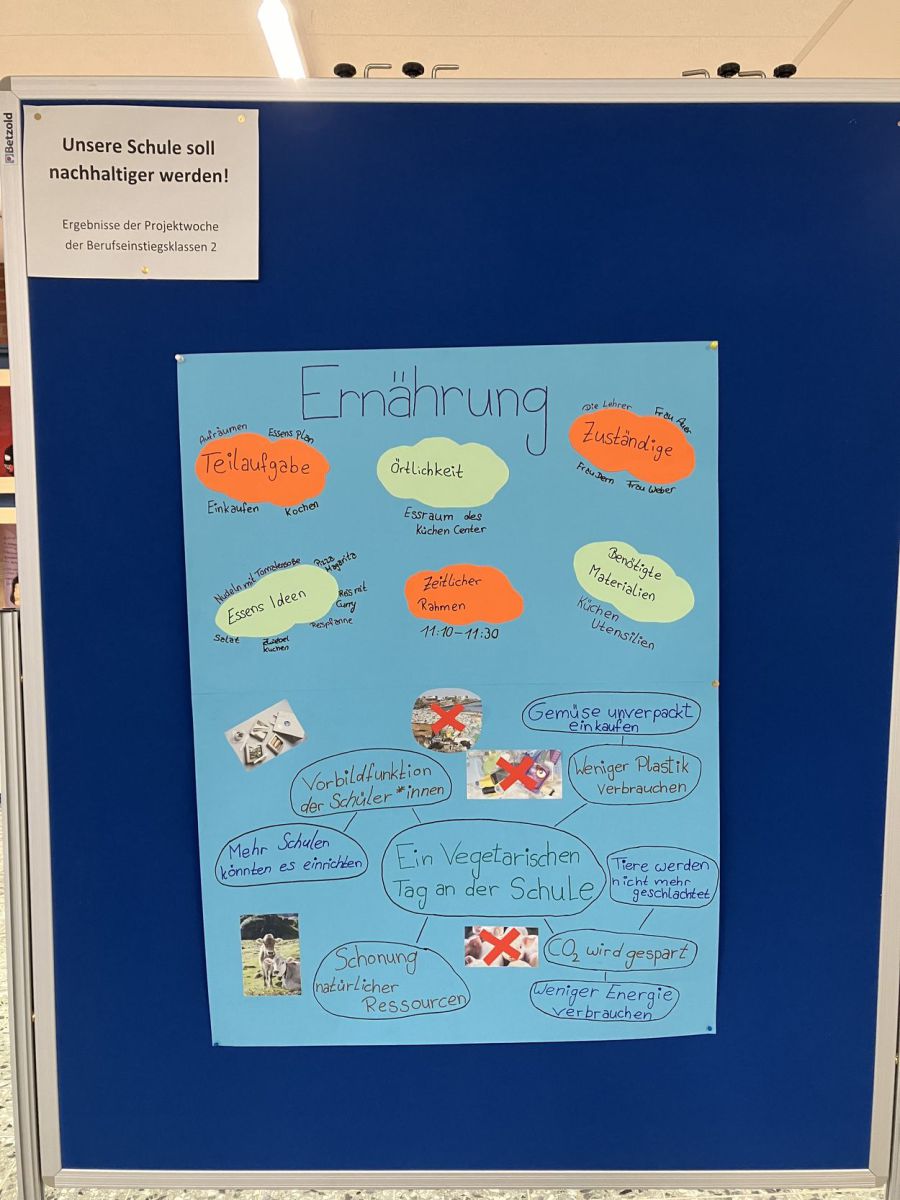 Betzold
Unsere Schule soll
nachhaltiger werden!
Ergebnisse der Projektwoche
der Berufseinstiegsklassen 2
Ernährung
Aufräumen
Essens Plan
Teilaufgabe
Einkaufen
Kochen
Örtlichkeit
Essraum des
Küchen Center
Die Lehrer
Frau
Zuständige
Frau Dern
Frau Weber
Nudeln mit Tomatensoße
Pizza
Magarita
Essens Ideen
Reis mit
Curry
Reispfanne
Salat
Zwiebel
Kuchen
Zeitlicher
Rahmen
11:10-11:30
Benötigte
Materialien
Küchen
Utensilien
Gemüse unverpackt
einkaufen
Vorbildfunktion
der Schüler*innen
Weniger Plastik
verbrauchen
Mehr Schulen
könnten es einrichten
Ein Vegetarischen
Tag an der Schule
Tiere werden
nicht mehr
geschlachtet
Schonung
natürlicher
Ressourcen
CO2 wird gespart
Weniger Energie
verbrauchen